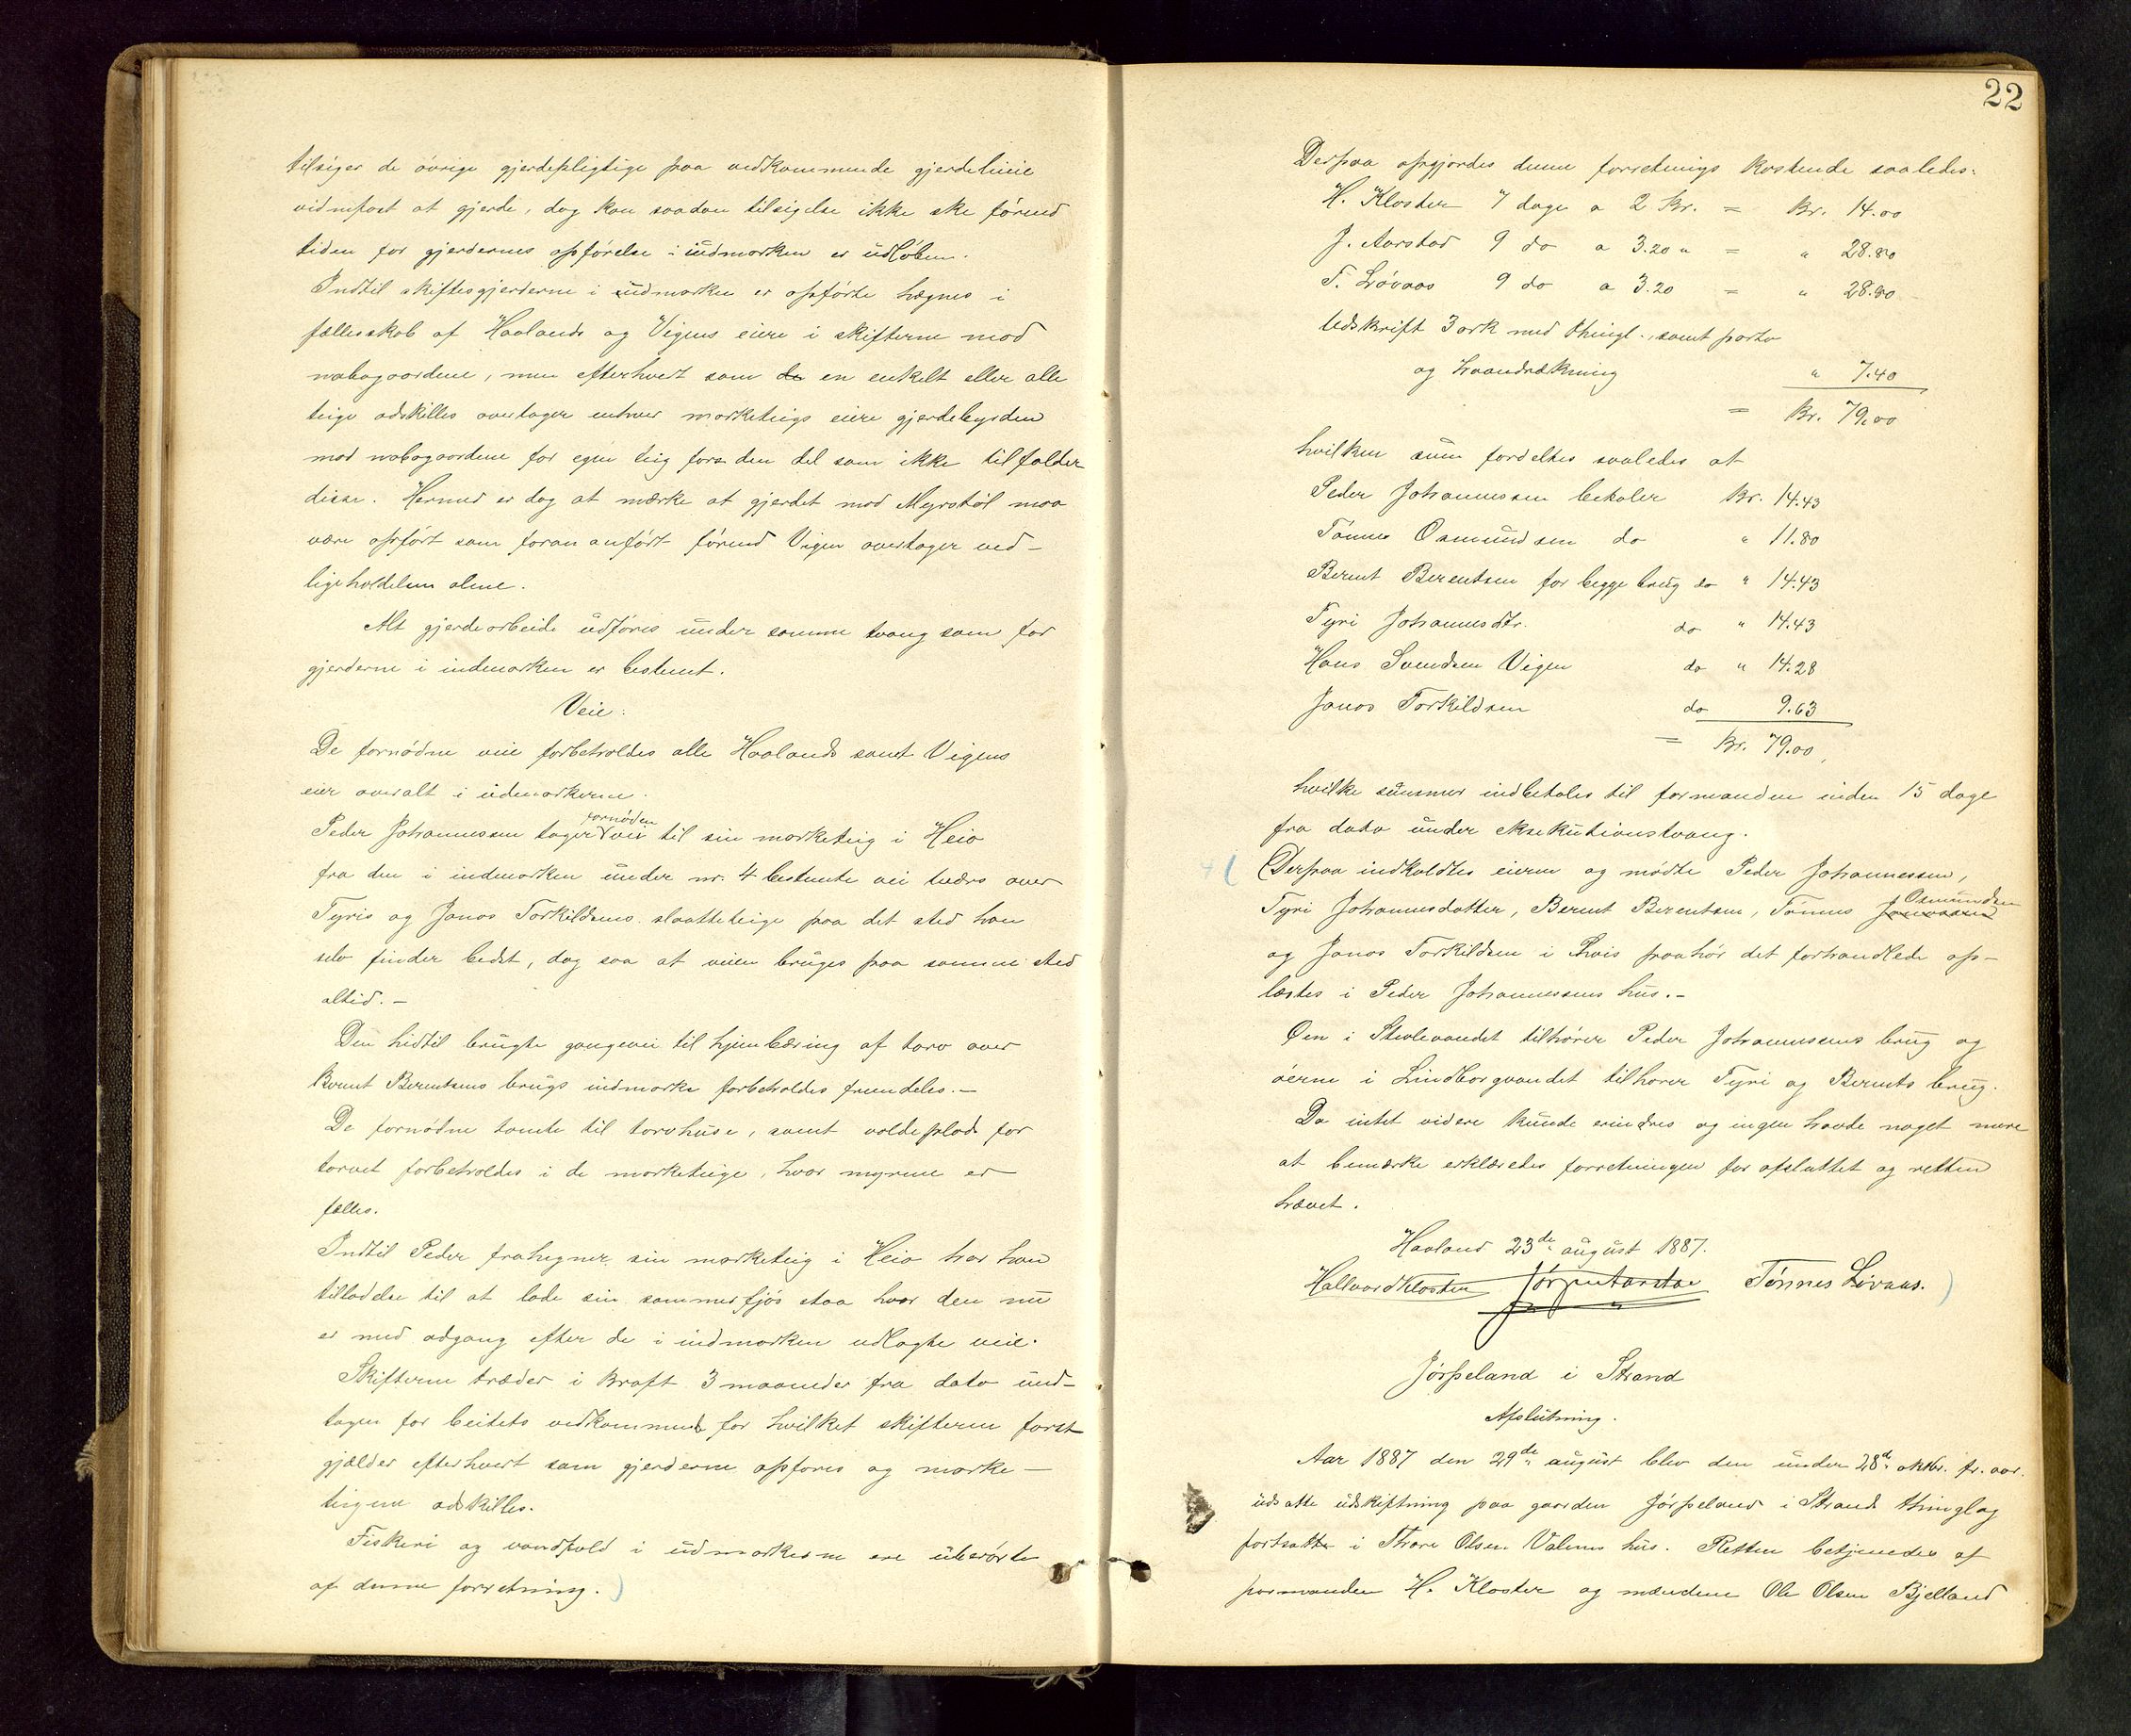 tilsiger de øvrige gjerdepligtige paa vedkommende gjerdelinie
vidnefast at gjerde, dog kan saadan tilsigelse ikke ske førend
tiden for gjerdernes opførelse i udmarken er udløben.
Indtil skiftesgjerderne i udmarken er opførte hegnes i
fællesskab af Haalands og Vigens eiere i skifterne mod
nabogaardene, men efterhvert som de en enkelt eller alle
teige adskilles overtager enhver marketeigs eiere gjerdebyrden
mod nabogaardene for egen teig fors den del som ikke tilfalder
disse. Herved er dog at mærke at gjerdet mod Myrstøl maa
være opført som foran anført førend Vigen overtager ved-
ligeholdelsen alene.
Alt gjerdearbeide udføres under samme tvang som for
gjerderne i indmarken er bestemt.
Veie:
De fornødne veie forbeholdes alle Haalands samt Vigens
eier overalt i udmarkerne.
fornøden
Peder Johannessen tager vei til sin marketeig i Heia
fra den i indmarken under nr. 4 bestemte vei tværs over
Tyris og Janos Torkildsens slaatteteige paa det sted han
selv finder bedst, dog saa at veien bruges paa samme sted
altid.-
Den hidtil brugte gangevei til hjembæring af torv over
Bernt Berentsens brugs indmark forbeholdes fremdeles.-
De fornødne tomte til torvhuse, samt voldeplads for
torvet forbeholdes i de marketeige, hvor myrene er
fælles.
Indtil Peder frahegner sin marketeig i Heia har han
tilladelse til at lade sin sommerfjøs staa hvor den nu
er med adgang efter de i indmarken udlagte veie.
Skifterne træder i kraft 3 maaneder fra dato und-
tagen for beitets vedkommende for hvilket skifterne først
gjælder efterhvert som gjerderne opføres og marke-
teigene adskilles.
Fiskeri og vandfald i udmarkerne ere uberørte
af denne forretning.
22
Derpaa opgjordes denne forretnings kostende saaledes:
H. Kloster 7 dage a 2 Kr. = Kr. 14.00
J. Aarstad 9 do a 3.20 " = " 28.80
T. Løvaas 9 do a 3.20 = " 28.80
Udskrift 3 ark med thingl., samt porto
og haandrækning " 7.40
= Kr. 79.00
hvilken sum fordeltes saaledes at
Peder Johannessen betaler Kr. 14.43
Tønnes Osmundsen do " 11.80
Bernt Berentsen for begge brug do " 14.43
Tyri Johannesdtr. do " 14.43
Hans Svendsen Vigen do " 14.28
Janos Torkildsen do 9.63
= Kr. 79.00,
hvilke summer indbetales til formanden inden 15 dage
fra dato under eksekutionstvang.
Derpaa indkaldtes eierne og mødte Peder Johannessen,
Osmundsen
Tyri Johannesdatter, Bernt Berentsen, Tønnes
og Janos Torkildsen i hvis paahør det forhandlede op-
læstes i Peder Johannessens hus.-
Øen i Stølevandet tilhører Peder Johannessens brug og
øerne i Lindborgvandet tilhører Tyri og Bernts brug.
Da intet videre kunde erindres og ingen havde noget mere
at bemærke erklæredes forretningen for afsluttet og retten
hævet.
Haaland 23de august 1887.
Hallvard Kloster Jørgen Aarstad Tønnes Løvaas.
Jørpeland i Strand
Afslutning.
Aar 1887 den 29de august blev den under 28de oktbr. fr. aar.
udsatte udskiftning paa gaarden Jørpeland i Strands thinglag
fortsatte i Thore Olsen Valens hus. Retten betjenedes af
formanden H. Kloster og mændene Ole Olsen Bjelland